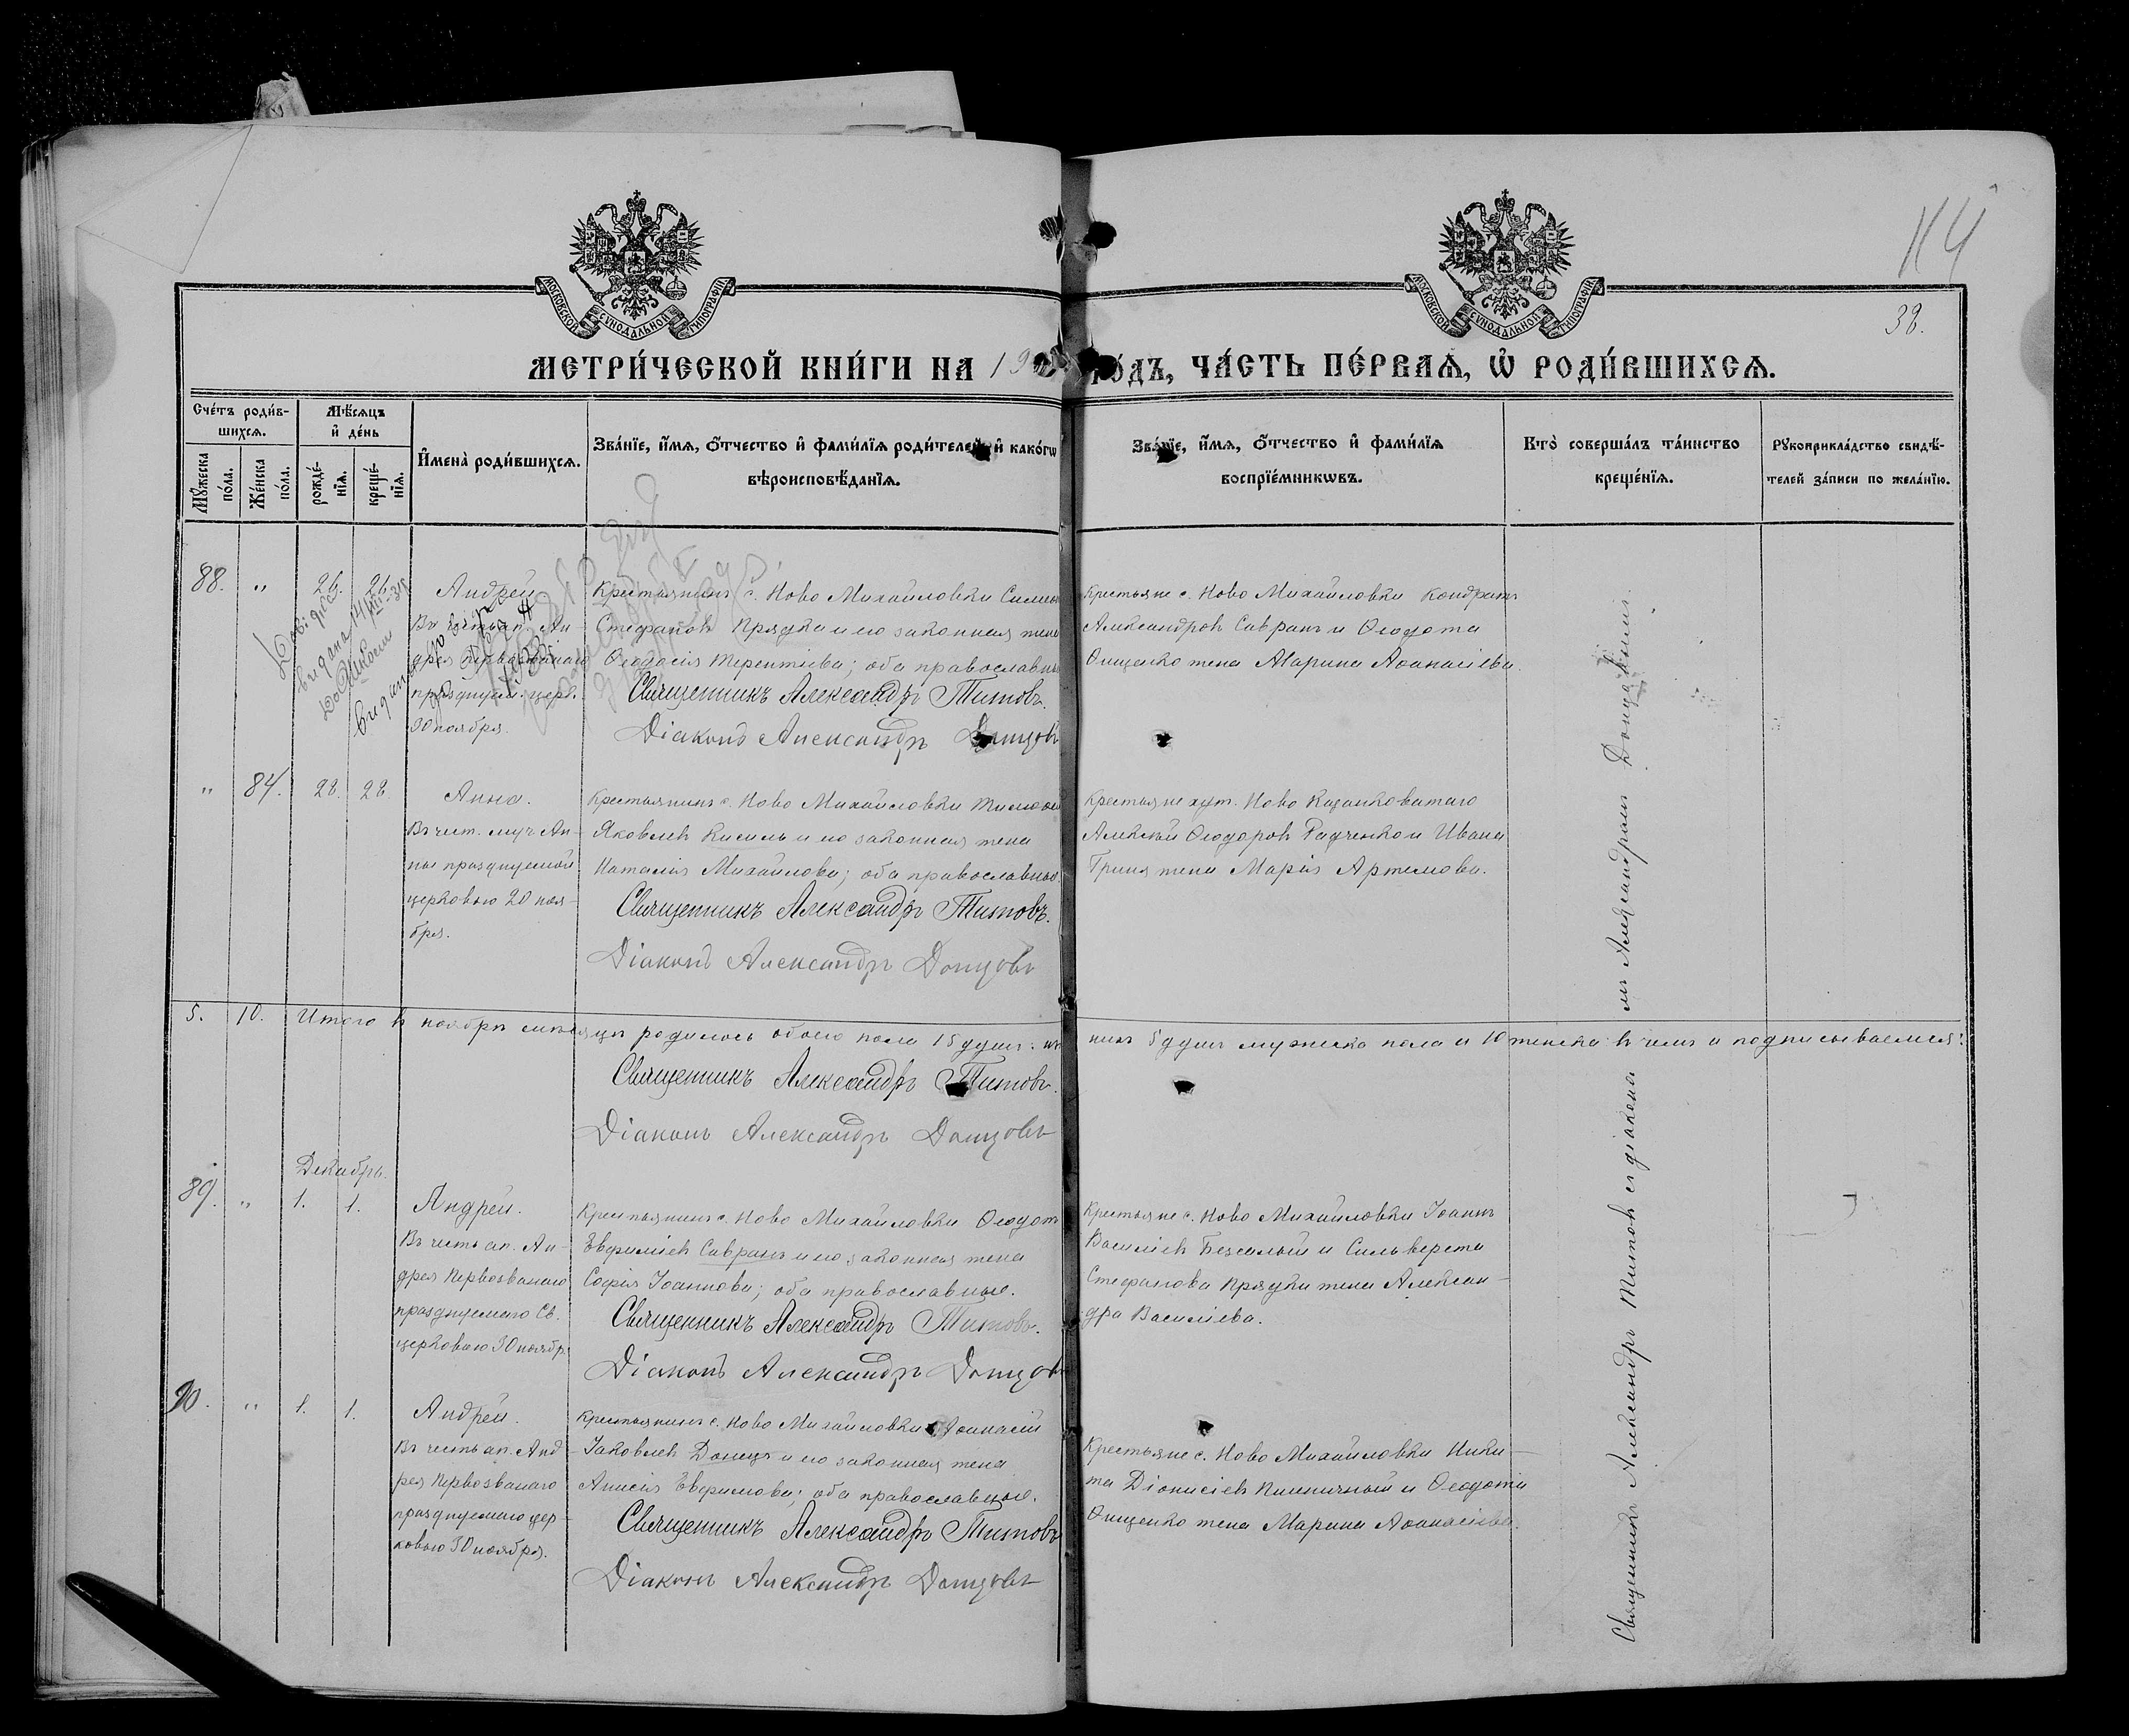 114
38.
МОСКОВСКОЙ СѴНОДАЛЬНОЙ ТИПОГРАФІИ
МОСКОВСКОЙ СѴНОДАЛЬНОЙ ТИПОГРАФІИ
МЕТРИ́ЧЕСКОЙ КНИ́ГИ НА 19 ГО́ДЪ, ЧА́СТЬ ПЕ́РВАѦ, Ѡ РОДИ́ВШИХСѦ.
Сче́тъ роди́вшихсѧ.
Мꙋ́жеска по́ла.
Же́нска по́ла.
Мѣ́сѧцъ и де́нь
рожде́нїѧ.
креще́нїѧ.
И҆мена̀ роди́вшихсѧ.
Зва́нїе, и҆́мѧ, ѻ҆́тчество и҆ фами́лїѧ роди́телей, и҆ како́гѡ
вѣроисповѣ́данїѧ.
Зва́нїе, и҆́мѧ, ѻ҆́тчество и҆ фами́лїѧ
воспрїе́мникѡвъ.
Кто̀ соверша́лъ та́инство
креще́нїѧ.
Рꙋкоприкла́дство свидѣ́-
телей за́писи по жела́нїю.
88. " 26. 26.
Андрей
Въ честь ап. Ан-
дрея Первозваннаго
празднуем. церк.
30 ноября.
Крестьянинъ с. Ново Михайловки Симеонъ
Стефановъ Прядка и его законная жена
Ѳеодосія Терентіева; оба православные
Священникъ Александръ Титовъ.
Діаконъ Александръ Донцовъ
Крестьяне с. Ново Михайловки Кондратъ
Александровъ Савранъ и Ѳеодота
Онищенко жена Марина Аѳанасіева.
" 84. 28. 28
Анна.
Въ чест. муч. Ан-
ны празднуемой
церковью 20 ноя-
бря.
Крестьянинъ с. Ново Михайловки Тимоѳей
Яковлевъ Кисиль и его законная жена
Наталія Михайлова; оба православные.
Священникъ Александръ Титовъ.
Діаконъ Александръ Донцовъ
Крестьяне хут. Ново
Алексѣй Ѳеодоровъ Радченко и Ивана
Гриня жена Марія Артемова.
5. 10. Итого въ ноябрѣ мѣсяцѣ родилось обоего пола 15 душъ: изъ нихъ 5 душъ мужска пола и 10 женска въ чемъ и подписываемся:
Священникъ Александръ Титовъ.
Діаконъ Александръ Донцовъ
Декабрь.
89. " 1. 1.
Андрей.
Въ честь ап. Ан-
дрея Первозваннаго
празднуемаго Св.
церковью 30 ноябр.
Крестьянинъ с. Ново Михайловки Ѳеодотъ
Евфиміевъ Савранъ и его законная жена
Софія Іоаннова; оба православные.
Священникъ Александръ Титовъ.
Діаконъ Александръ Донцовъ
Крестьяне с. Ново Михайловки Іоаннъ
Василіевъ Безсалый и Сильверста
Стефанова Прядки жена Алексан-
дра Василіева.
90. " 1. 1.
Андрей.
Въ честь ап. Анд-
рея Первозваннаго
празднуемаго цер-
ковью 30 ноября.
Крестьянинъ с. Ново Михайловки Аѳанасій
Іаковлевъ Донецъ и его законная жена
Анисія Евфимова; оба православные.
Священникъ Александръ Титовъ
Діаконъ Александръ Донцовъ
Крестьяне с. Ново Михайловки Ники-
та Діонисіевъ Пшеничный и Ѳеодота
Онищенко жена Марина Аѳанасіева.
Священникъ Александръ Титовъ съ діакономъ Александромъ Донцовымъ.